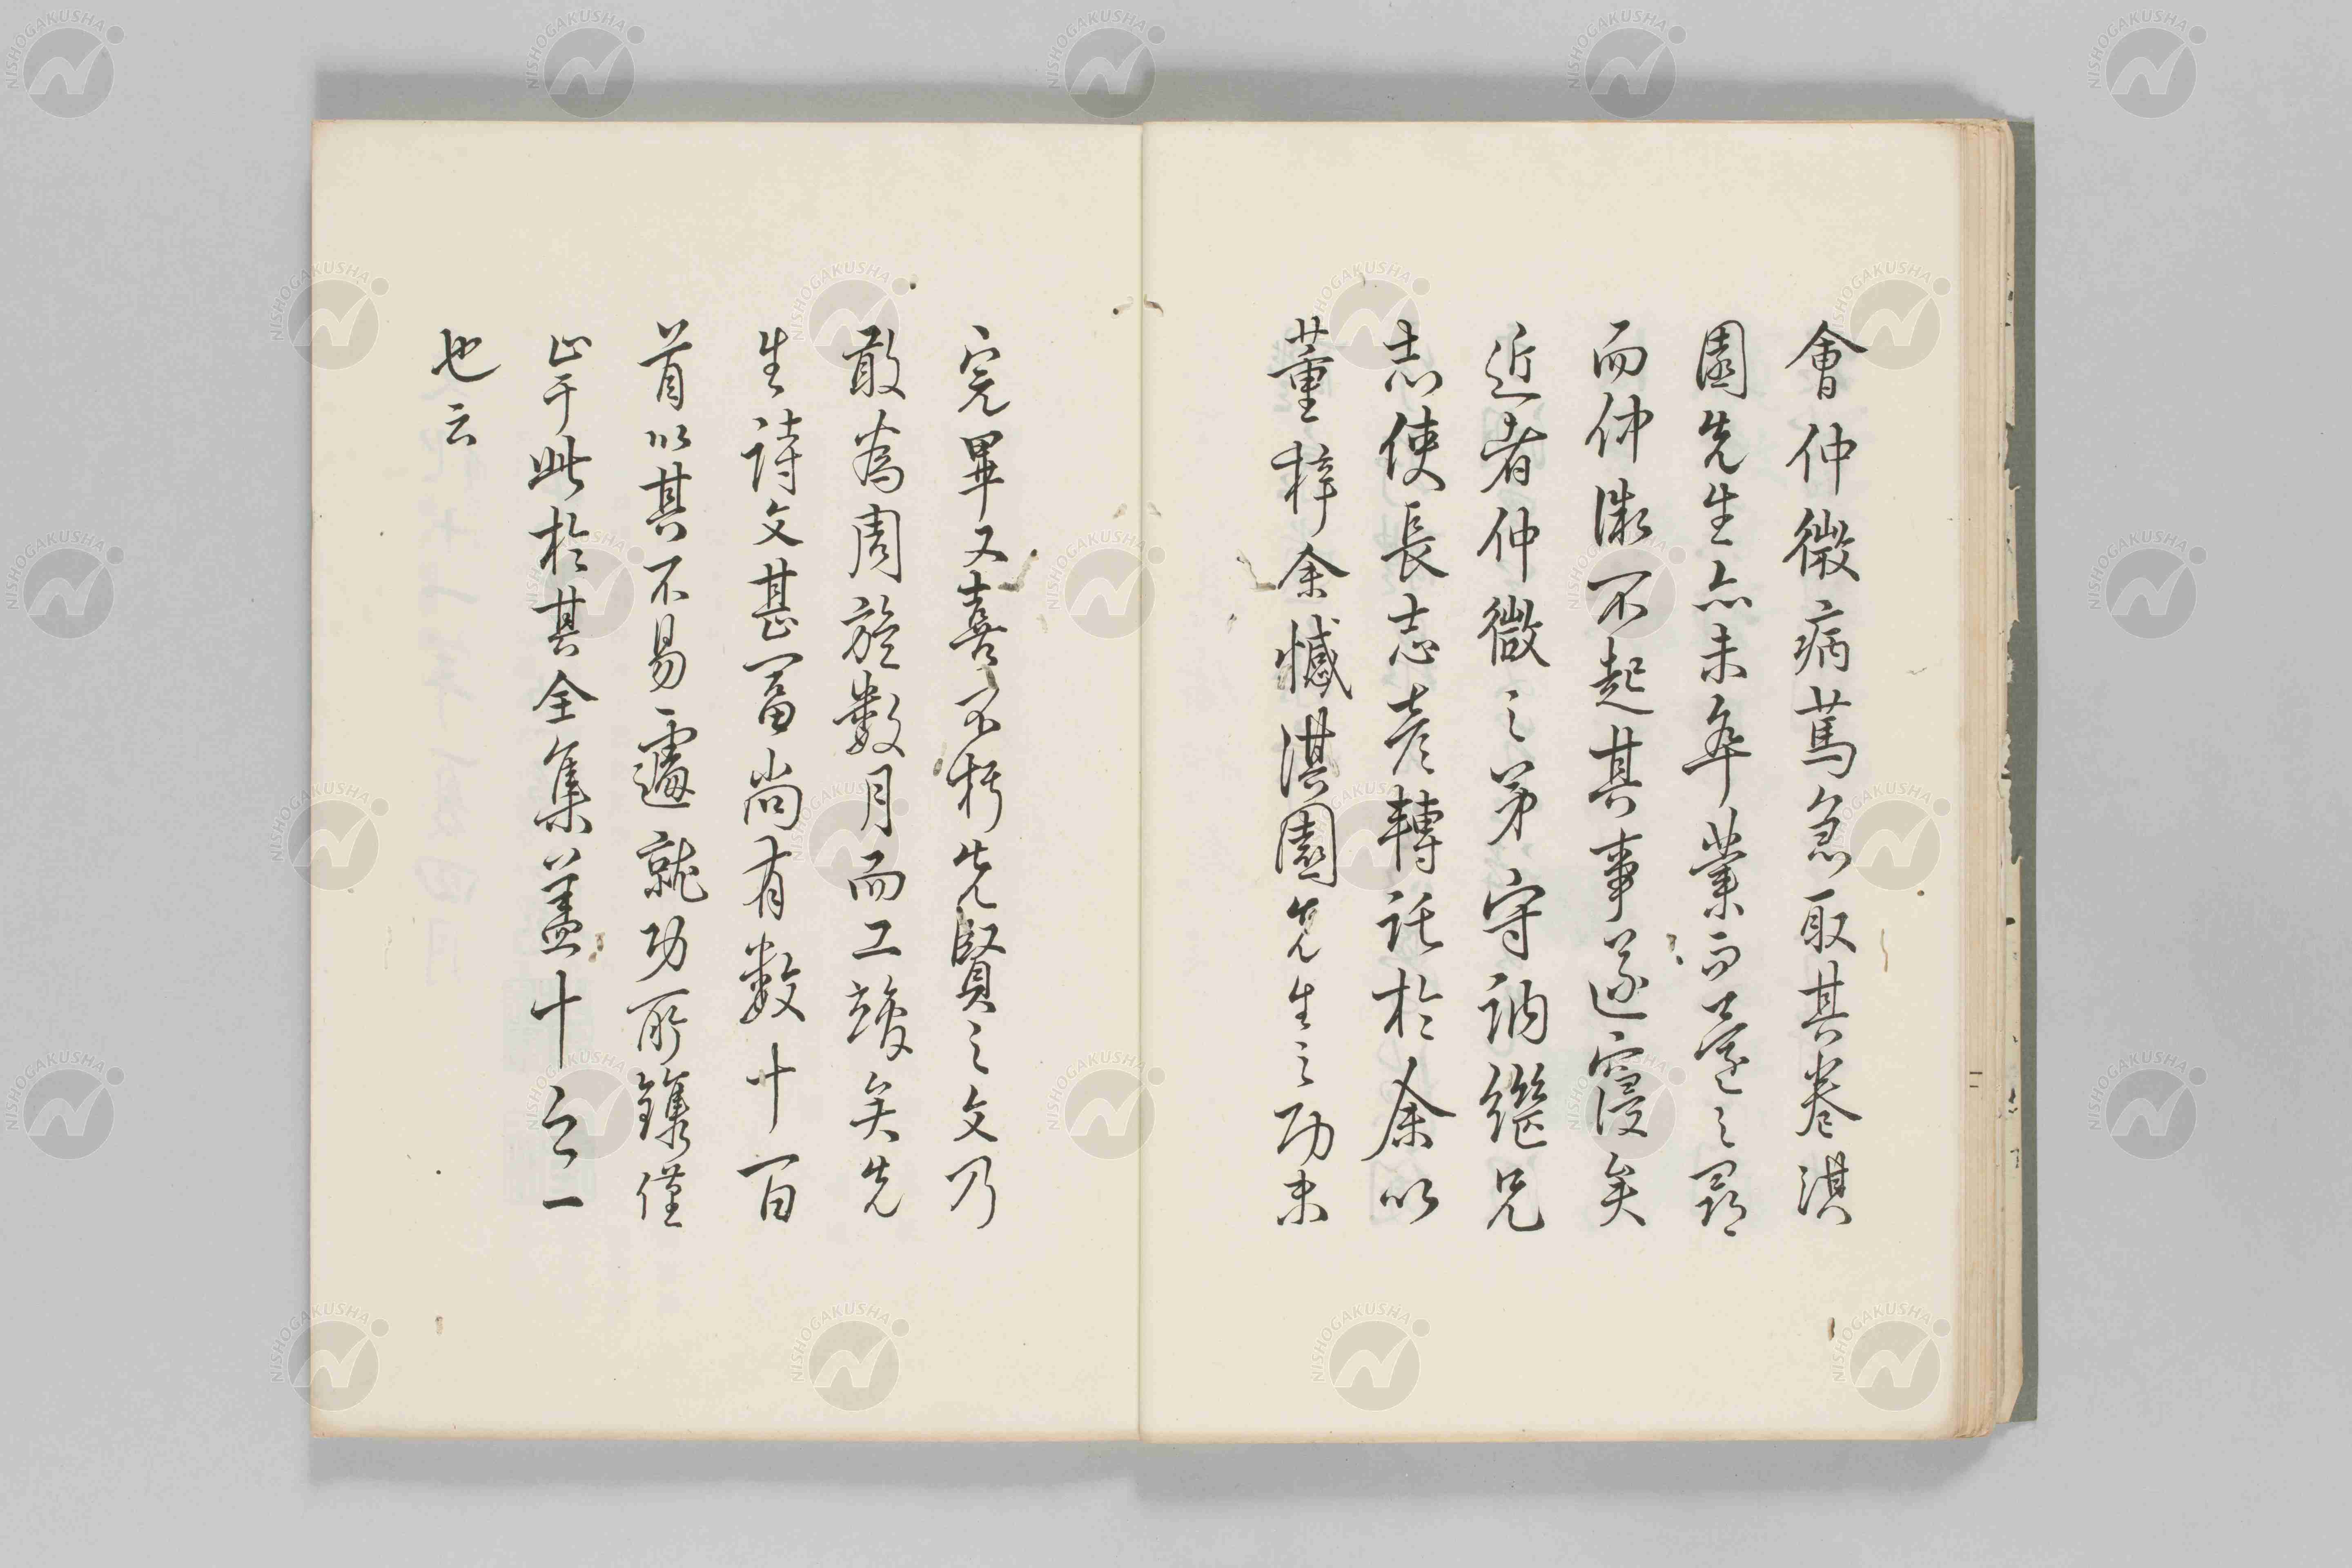 會仲微病篤急取其卷淇
園先生亦未卒業而還之尋
而仲微不起其事遂寢矣
近者仲微之弟守訥繼兄
志使長志彥轉託於余以
董梓余憾淇園先生之功未
完畢又喜不朽先賢之文乃
敢為周旋數月而工竣矣先
生詩文甚富尚有數十百
首以其不易遽就功所鐫僅
止于此於其全集蓋十之一
也云
NISHOGAKUSHA